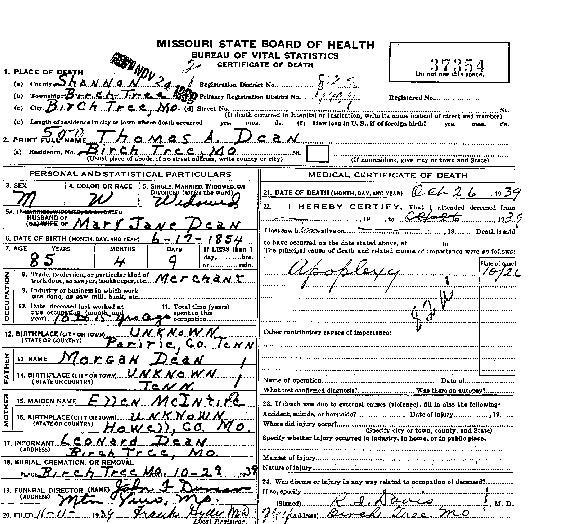 MISSOURI STATE BOARD OF HEALTH
BUREAU OF VITAL STATISTICS
CERTIFICATE OF DEATH
37354
Do not use this space.
1. PLACE OF DEATH
(a) County Shannon Registration District No.
(b) Township Birch Tree Primary Registration District No. Registered No.
(c) City Birch Tree, Mo. (d) Street No. St.
(If death occurred in hospital or institution, write its name instead of street and number)
(e) Length of residence in city or town where death occurred yrs. mos. ds. (f) How long in U.S., if of foreign birth? yrs. mos. ds.
2. PRINT FULL NAME Thomas A. Dean
(a) Residence, No. Birch Tree, Mo St.
(Usual place of abode, if no street address, write county or city) (If nonresident, give city or town and State)
PERSONAL AND STATISTICAL PARTICULARS
MEDICAL CERTIFICATE OF DEATH
3. SEX M
4. COLOR OR RACE W
5. SINGLE, MARRIED, WIDOWED, OR DIVORCED (write the word) Widowed
HUSBAND OF Mary Jane Dean
6. DATE OF BIRTH (MONTH, DAY, AND YEAR) 6-17-1854
7. AGE YEARS 85 MONTHS 4 DAYS 9 IF LESS than 1 day, hrs. or min.
OCCUPATION
8. Trade, profession, or particular kind of work done, as sawyer, bookkeeper, etc. Merchant
9. Industry or business in which work was done, as saw mill, bank, etc.
10. Date deceased last worked at this occupation (month and year)
11. Total time (years) spent in this occupation
12. BIRTHPLACE (CITY OR TOWN) UNKNOWN
(STATE OR COUNTRY) Co. Tenn
FATHER
13. NAME Morgan Dean
14. BIRTHPLACE (CITY OR TOWN) UNKNOWN
(STATE OR COUNTRY) Tenn
MOTHER
15. MAIDEN NAME Ellen McIntire
16. BIRTHPLACE (CITY OR TOWN) UNKNOWN
(STATE OR COUNTRY) Howell, Co. Mo.
17. INFORMANT Leonard Dean
(ADDRESS) Birch Tree, Mo.
18. BURIAL, CREMATION, OR REMOVAL
PLACE Birch Tree Mo. 10-29 39
19. FUNERAL DIRECTOR (NAME) John
(ADDRESS) Mo.
20. FILED 11-11- 1939 Frank M.D.
Local Registrar
21. DATE OF DEATH (MONTH, DAY, AND YEAR) Oct 26 1939
22. I HEREBY CERTIFY, That I attended deceased from
, 19 , to , 1939
I last saw h alive on , 19 Death is said
to have occurred on the date stated above, at m.
The principal cause of death and related causes of importance were as follows:
Date of onset
Apoplexy 10/26
Other contributory causes of importance:
Name of operation Date of
What test confirmed diagnosis? Was there an autopsy?
23. If death was due to external causes (violence), fill in also the following:
Accident, suicide, or homicide? Date of injury , 19
Where did injury occur?
(Specify city or town, county, and State)
Specify whether injury occurred in industry, in home, or in public place.
Manner of injury
Nature of injury
24. Was disease or injury in any way related to occupation of deceased?
If so, specify
(Signed) Davis M. D.
(Address) Birch Tree Mo